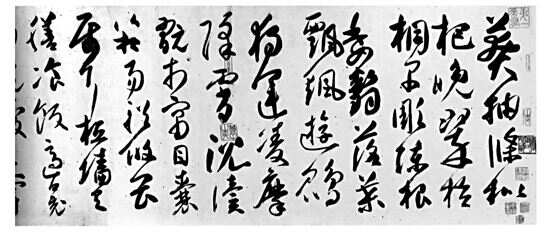 莽抽條枇
杷晚翠梧
桐早彫陳根
委翳落葉
飄颻遊鵾
獨運凌摩
絳霄耽讀
翫市寓目囊
箱易輶攸畏
属耳垣墻具
膳飡飯適口充